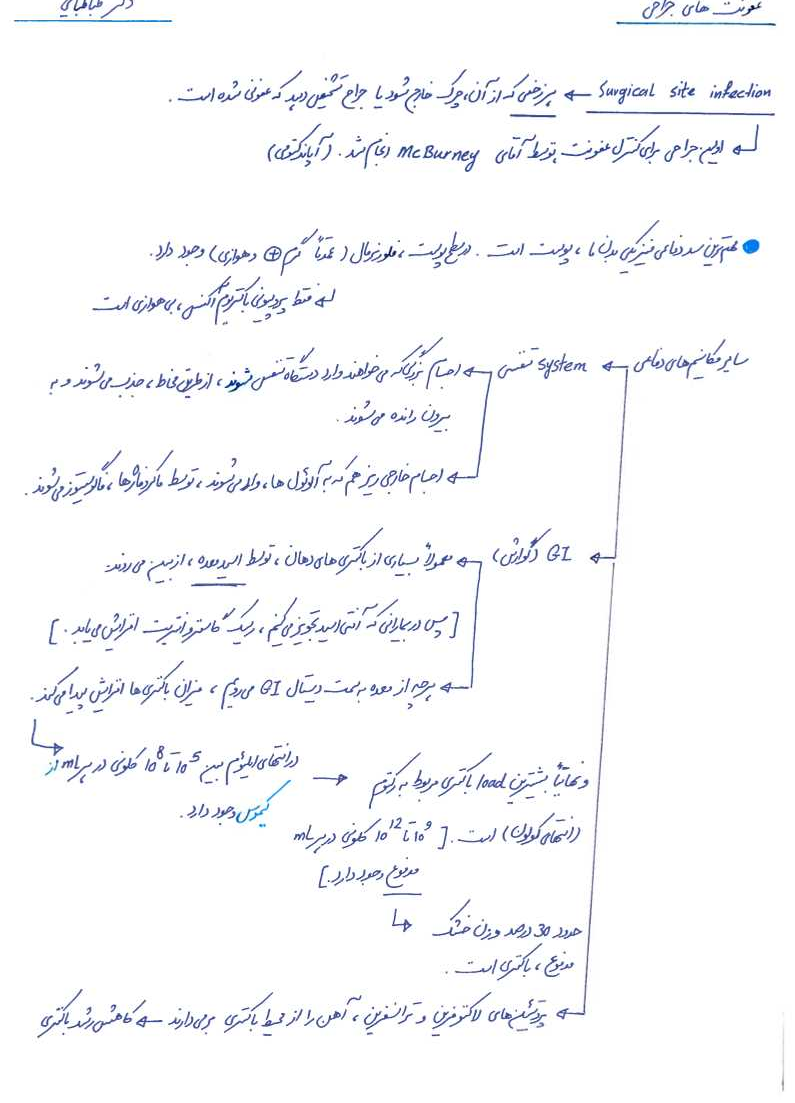 عفونت های جراحی
دکتر طباطبایی
Surgical site infection ← هر زخمی که از آن، چرک خارج شود یا جراح تشخیص دهد که عفونی شده است.
↲ اولین جراحی برای کنترل عفونت توسط آقای McBurney انجام شد. (آپاندکتومی)
● مهمترین سد دفاعی فیزیکی بدن ما، پوست است. در سطح پوست، فلور نرمال (عمدتاً گرم ⊕ و هوازی) وجود دارد.
↲ فقط پروپیونی باکتریوم آکنس، بی هوازی است
سایر مکانیسم های دفاعی ← system تنفسی ← اجسام بزرگی که می خواهند وارد دستگاه تنفس شوند، از طریق مخاط، جذب می شوند و به
بیرون رانده می شوند.
← اجسام خارجی ریز هم که به آلوئول ها، وارد می شوند، توسط ماکروفاژها، فاگوسیتوز می شوند.
← GI (گوارش) ← معمولاً بسیاری از باکتری های دهان، توسط اسید معده، از بین می روند.
[پس در بیمارانی که آنتی اسید تجویز می کنیم، ریسک گاستروانتریت افزایش می یابد.]
← هرچه از معده به سمت دیستال GI می رویم، میزان باکتری ها افزایش پیدا می کند.
در انتهای ایلئوم بین 10^5 تا 10^8 کلونی در هر mL از
کیموس وجود دارد.
→ و نهایتاً بیشترین load باکتری مربوط به رکتوم
(انتهای کولون) است. [10^9 تا 10^12 کلونی در هر mL
مدفوع وجود دارد.]
↳ حدود 30 درصد وزن خشک
مدفوع، باکتری است.
← پروتئین های لاکتوفرین و ترانسفرین، آهن را از محیط باکتری برمی دارند ← کاهش رشد باکتری